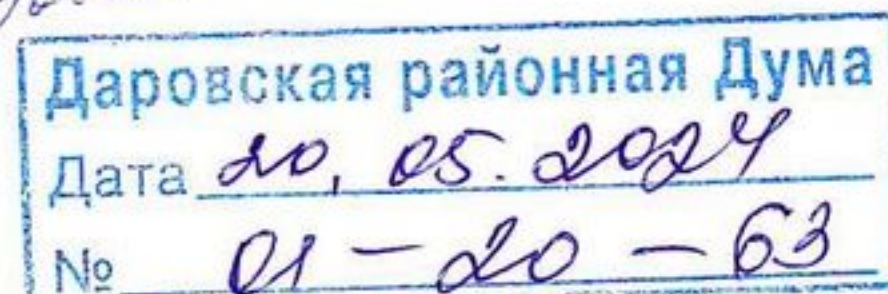 Даровская районная Дума
Дата 20.05.2024
№ 01-20-63